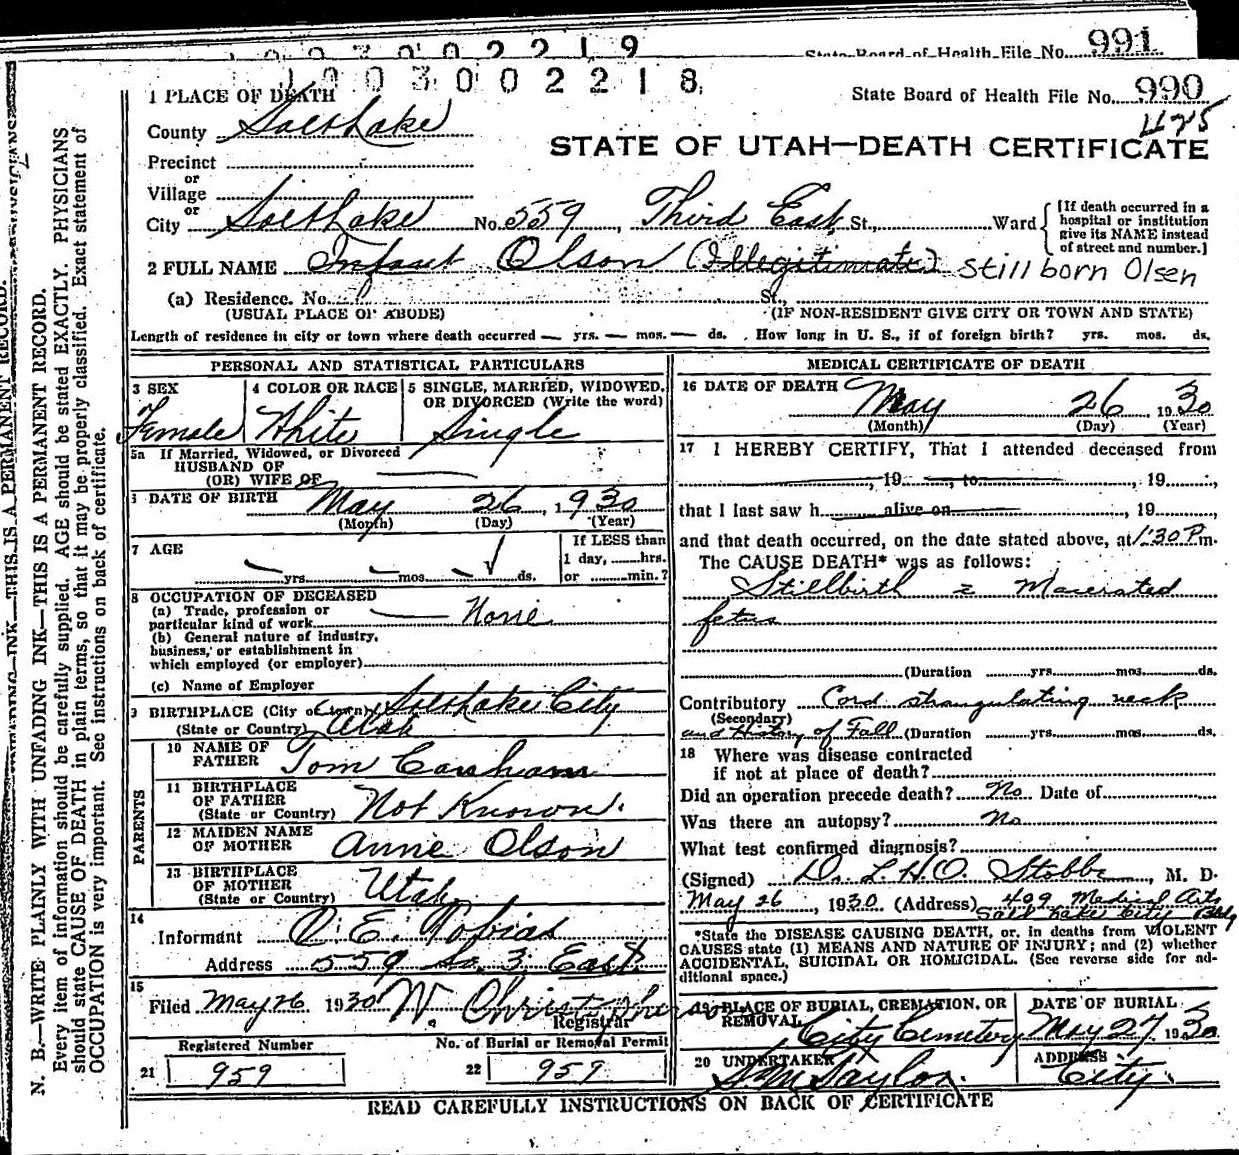 1003002219
State Board of Health File No. 991
1003002218
1 PLACE OF DEATH
State Board of Health File No. 990
1125
County Salt Lake
STATE OF UTAH—DEATH CERTIFICATE
Precinct
or
Village
or
City Salt Lake No. 559, Third East St., Ward
[If death occurred in a
hospital or institution
give its NAME instead
of street and number.]
2 FULL NAME Infant Olson (Illegitimate) Stillborn Olsen
(a) Residence. No. St.,
(USUAL PLACE OF ABODE) (IF NON-RESIDENT GIVE CITY OR TOWN AND STATE)
Length of residence in city or town where death occurred — yrs. — mos. — ds. How long in U. S., if of foreign birth? yrs. mos. ds.
PERSONAL AND STATISTICAL PARTICULARS
3 SEX
Female
4 COLOR OR RACE
White
5 SINGLE, MARRIED, WIDOWED,
OR DIVORCED (Write the word)
Single
5a If Married, Widowed, or Divorced
HUSBAND OF
(OR) WIFE OF
6 DATE OF BIRTH May 26, 1930
(Month) (Day) (Year)
7 AGE
yrs. mos. ds.
If LESS than
1 day, hrs.
or min.?
8 OCCUPATION OF DECEASED
(a) Trade, profession or
particular kind of work None
(b) General nature of industry,
business, or establishment in
which employed (or employer)
(c) Name of Employer
9 BIRTHPLACE (City or town) Salt Lake City
(State or Country) Utah
PARENTS
10 NAME OF
FATHER Tom
11 BIRTHPLACE
OF FATHER
(State or Country) Not Known.
12 MAIDEN NAME
OF MOTHER Annie Olson
13 BIRTHPLACE
OF MOTHER
(State or Country) Utah
14
Informant O. E. Tobias
Address 559 So. 3 East
15
Filed May 26 1930 W. Christopherson
Registrar
Registered Number No. of Burial or Removal Permit
21 959 22 959
MEDICAL CERTIFICATE OF DEATH
16 DATE OF DEATH
May 26, 1930
(Month) (Day) (Year)
17 I HEREBY CERTIFY, That I attended deceased from
, 19 , to , 19 ,
that I last saw h alive on , 19 ,
and that death occurred, on the date stated above, at 1:30 P.m.
The CAUSE DEATH* was as follows:
Stillbirth c Macerated
fetus
(Duration yrs. mos. ds.
Contributory Cord strangulating neck
(Secondary)
and History of Fall (Duration yrs. mos. ds.
18 Where was disease contracted
if not at place of death?
Did an operation precede death? No Date of
Was there an autopsy? No
What test confirmed diagnosis?
(Signed) Dr. L H O Stobbe, M. D.
May 26, 1930 (Address) 409 Medical Arts
Salt Lake City Bldg
*State the DISEASE CAUSING DEATH, or, in deaths from VIOLENT
CAUSES state (1) MEANS AND NATURE OF INJURY; and (2) whether
ACCIDENTAL, SUICIDAL OR HOMICIDAL. (See reverse side for ad-
ditional space.)
19 PLACE OF BURIAL, CREMATION, OR
REMOVAL City Cemetery
DATE OF BURIAL
May 27 1930
20 UNDERTAKER
S. M. Taylor.
ADDRESS
City.
READ CAREFULLY INSTRUCTIONS ON BACK OF CERTIFICATE
N. B.—WRITE PLAINLY WITH UNFADING INK—THIS IS A PERMANENT RECORD.
Every item of information should be carefully supplied. AGE should be stated EXACTLY. PHYSICIANS
should state CAUSE OF DEATH in plain terms, so that it may be properly classified. Exact statement of
OCCUPATION is very important. See instructions on back of certificate.